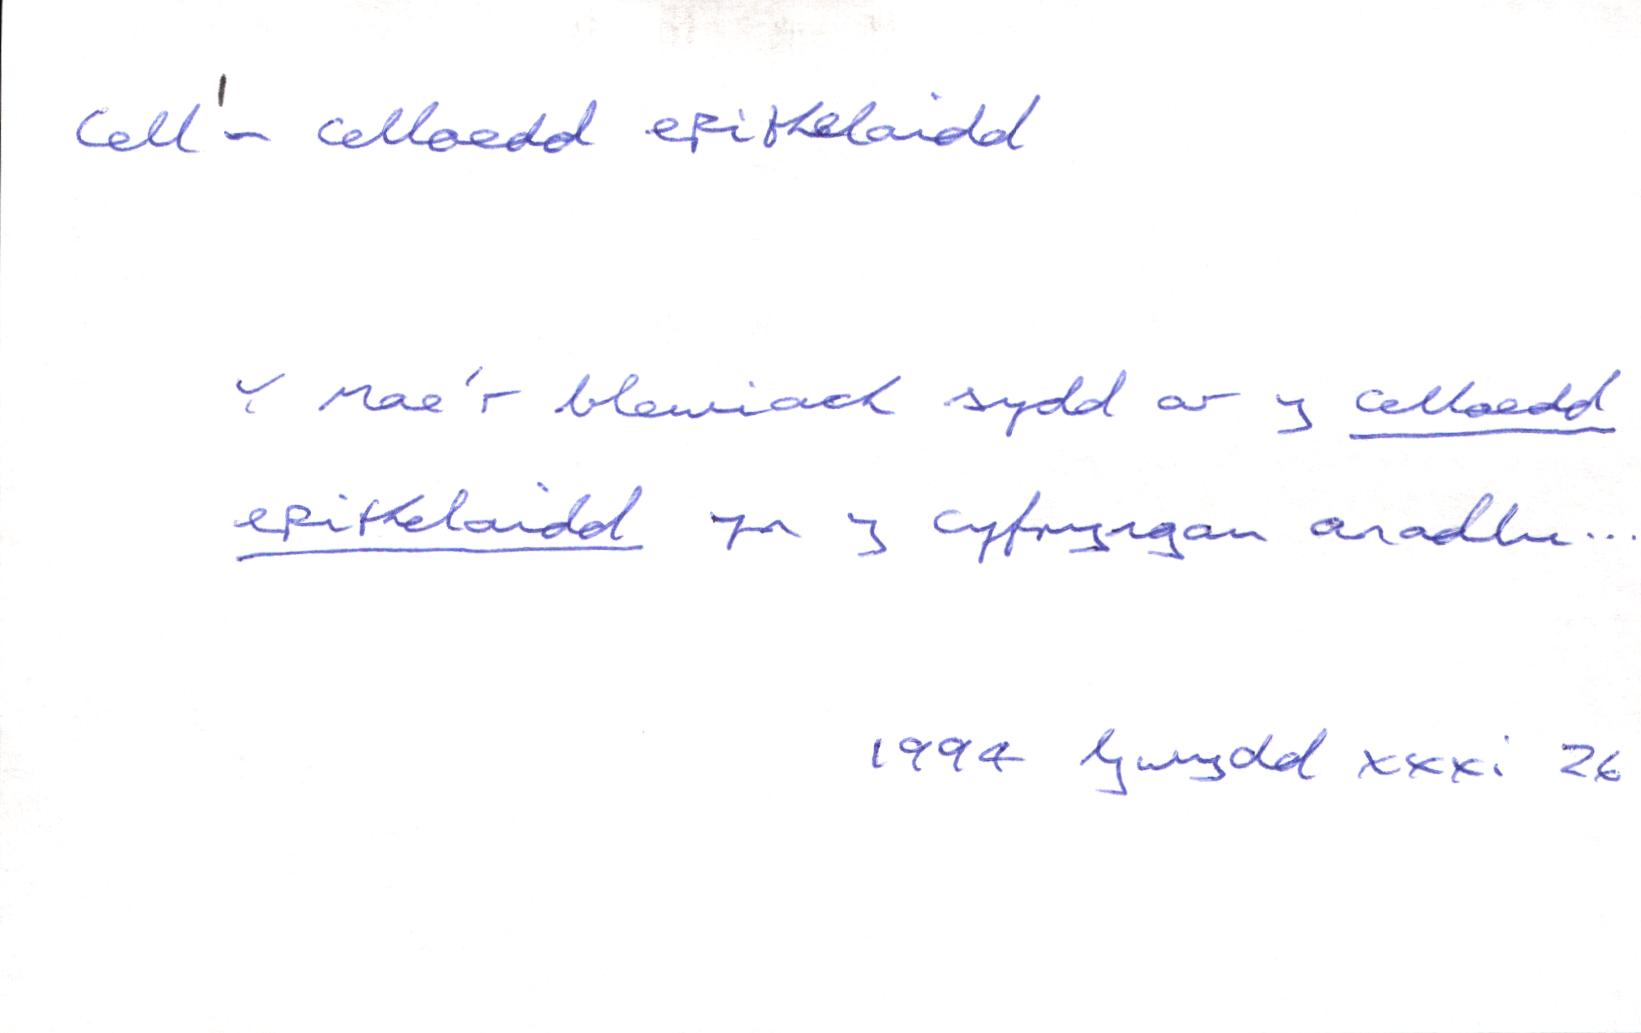 Cell¹ – celloedd epithelaidd
Mae'r blewiach sydd ar y celloedd
epithelaidd yn y anadlu...
1994 Gwydd xxxi 26